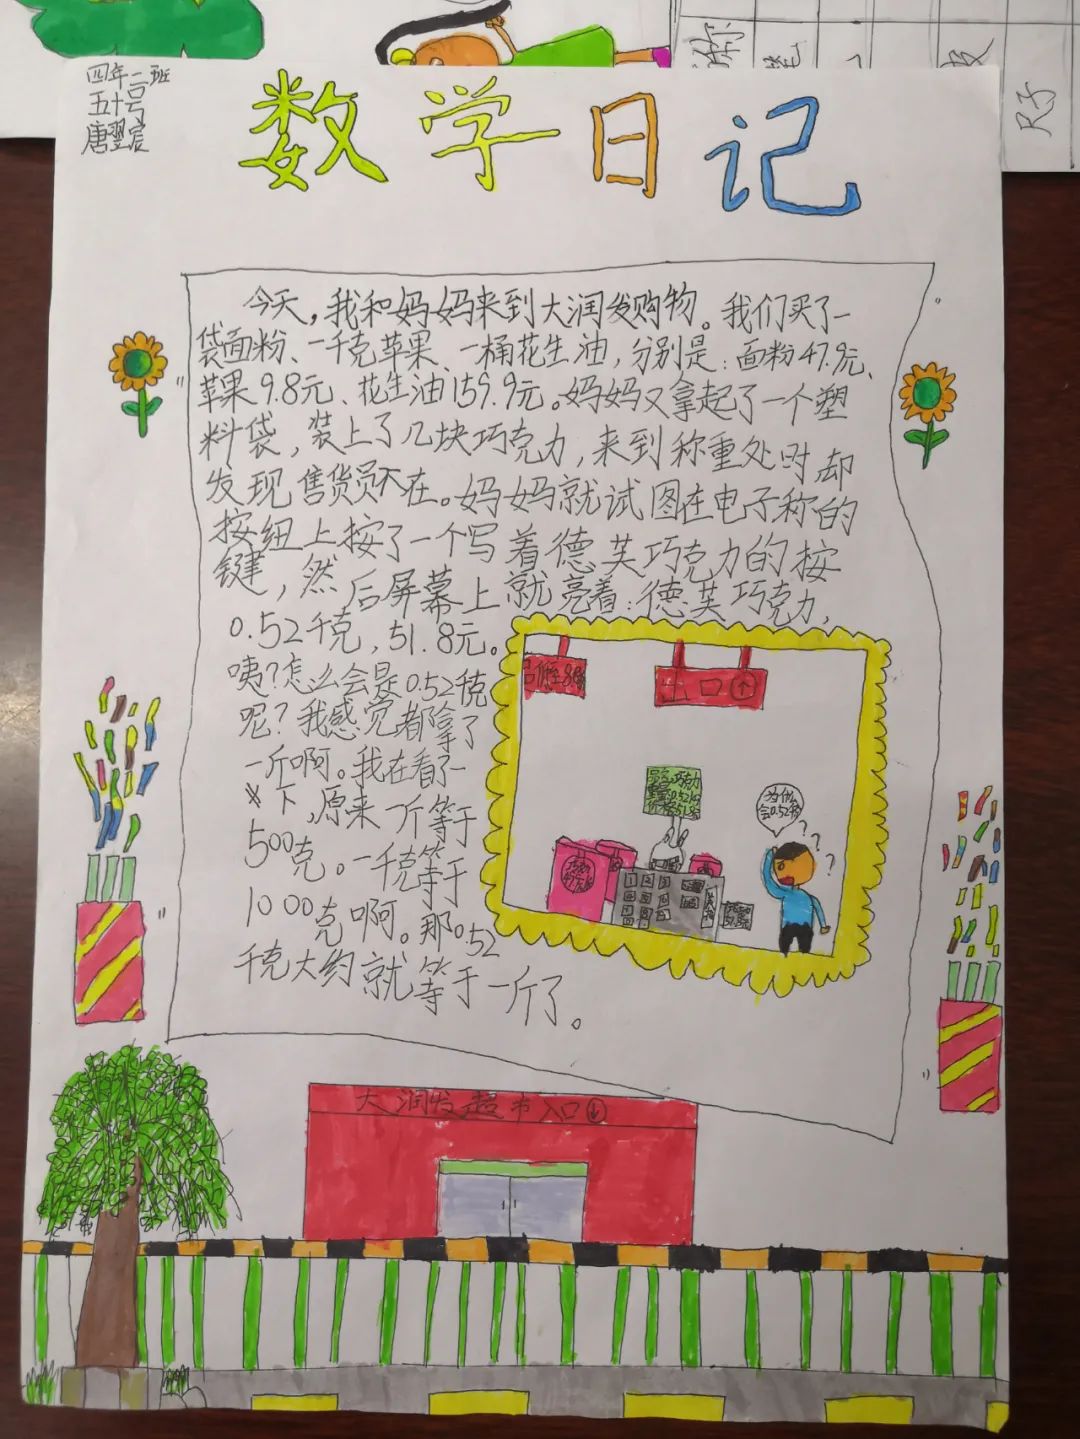 四年二班
五十号
唐翌宸
数学日记
今天,我和妈妈来到大润发购物。我们买了一
袋面粉、一千克苹果、一桶花生油,分别是:面粉47.9元、
苹果9.8元、花生油159.9元。妈妈又拿起了一个塑
料袋,装上了几块巧克力,来到称重处时,却
发现售货员不在。妈妈就试图在电子称的
按纽上按了一个写着德芙巧克力的按
键,然后屏幕上就亮着:德芙巧克力,
0.52千克,51.8元。
咦?怎么会是0.52千克
呢?我感觉都拿了
一斤啊。我在看了一
下,原来一斤等于
500克。一千克等于
1000克啊。那0.52
千克大约就等于一斤了。
出口
为什么
会0.52千克
大润发超市入口
称